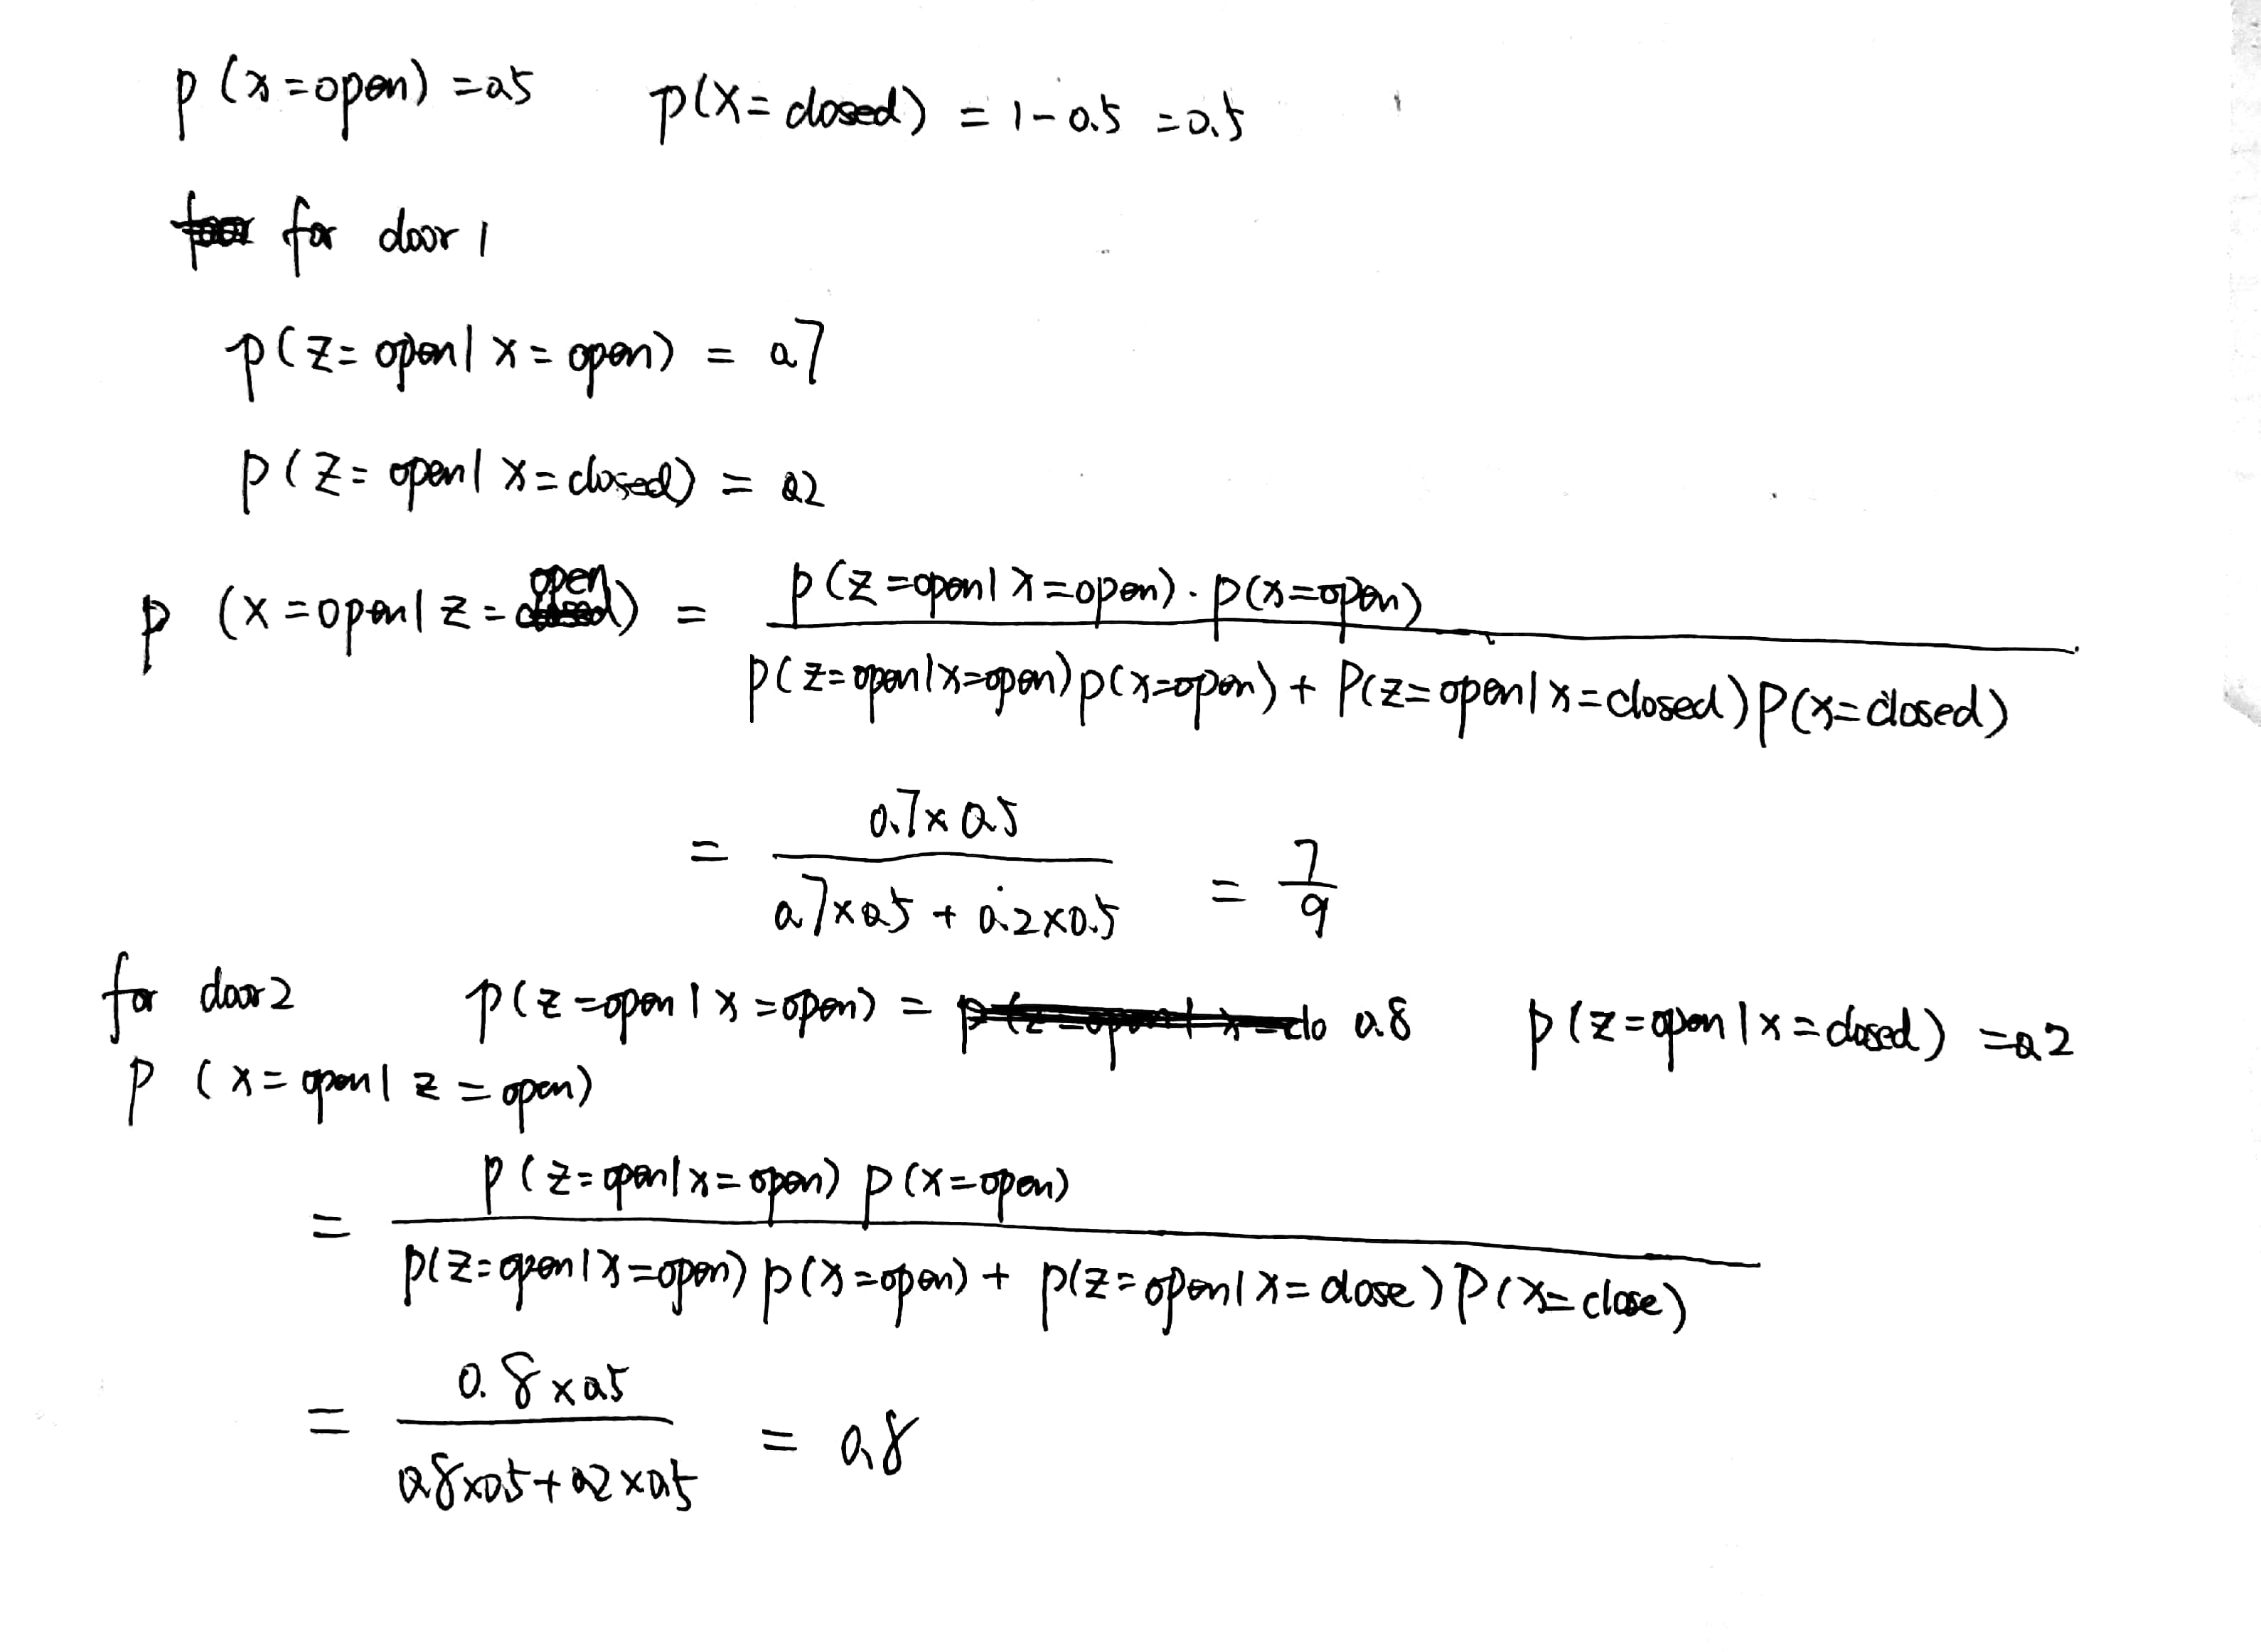 p (x=open) =0.5 p(x= closed) = 1-0.5 =0.5
for door 1
p(z= open| x= open) = 0.7
p(z= open| x=closed) = 0.2
p (x=open| z= open) = p(z=open| x=open)·p(x=open) / p(z=open|x=open)p(x=open) + p(z=open| x=closed)p(x=closed)
= 0.7×0.5 / 0.7×0.5 + 0.2×0.5 = 7/9
for door2 p(z=open | x=open) = 0.8 p(z=open | x=closed) =0.2
p (x= open| z = open)
= p(z=open|x=open) p(x=open) / p(z=open|x=open) p(x=open) + p(z=open|x=close) p(x=close)
= 0.8×0.5 / 0.8×0.5+0.2×0.5 = 0.8